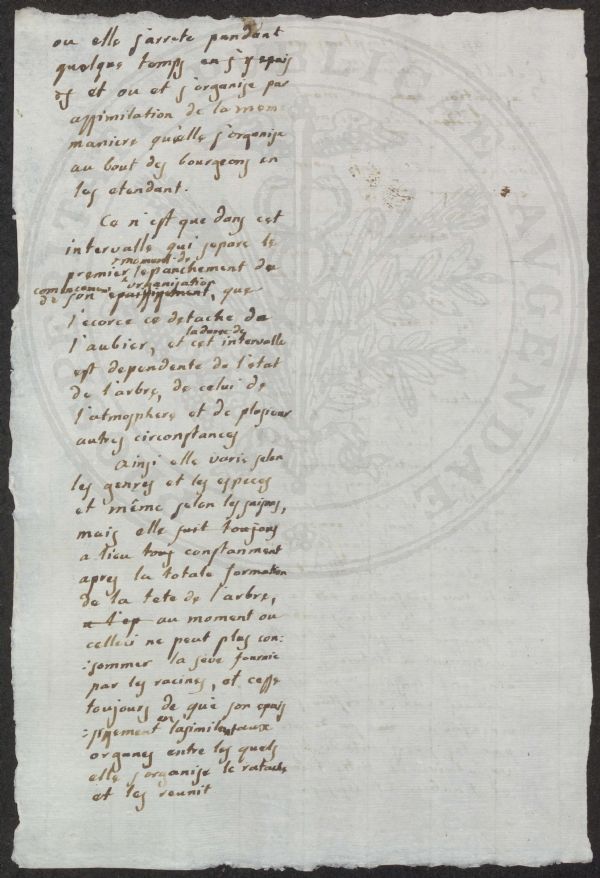 ou elle s'arrete pandant
quelque temps en s'y epais
et ou et s'organise par
assimilation de la meme
maniere qu'elle s'organise
au bout des bourgeons en
les etendant.
Ce n'est que dans cet
intervalle qui separe le
moment de
premier l'epanchement de
comencement organisation
de son epaississement, que
l'ecorce ce detache de
la duree de
l'aubier, et cet intervalle
est dependente de l'etat
de l'arbre, de celui de
l'atmosphere et de plusieur
autres circonstances
Ainsi elle varie selon
les genres et les especes
et même selon les saisons,
mais elle suit toujours
a lieu tous constanment
apres la totale formation
de la tete de l'arbre,
au moment ou
celleci ne peut plus con:
:sommer la séve fournie
par les racines, et cesse
toujours de que son epais
:sissement en l'asimilent aux
organes entre les quels
elle s'organise le ratache
et les reunit